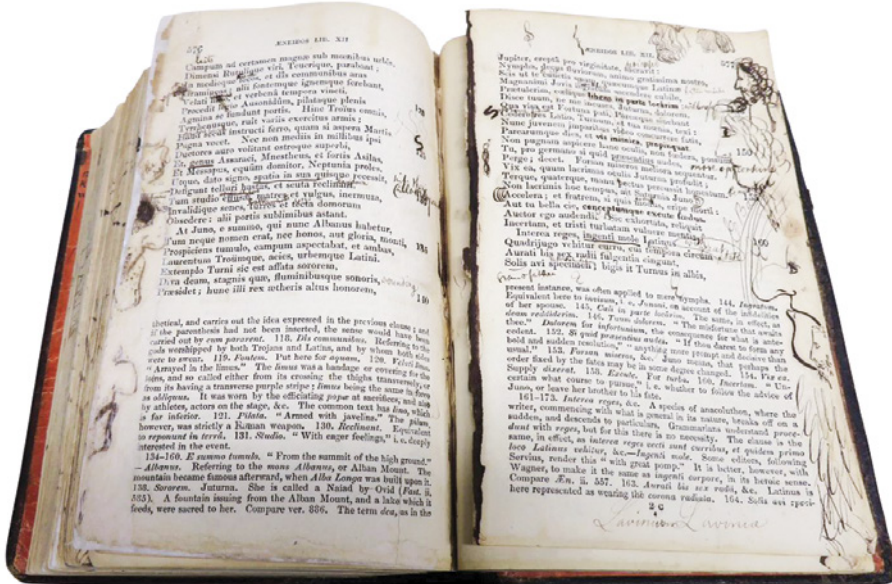 576
ÆNEIDOS LIB. XII
Campum ad certamen magnæ sub mœnibus urbis,
Dimensi Rutulique viri, Teucrique, parabant;
In medioque focos, et dîs communibus aras
Gramineas: alii fontemque ignemque ferebant,
Velati et verbenâ tempora vincti.
Procedit legio Ausonidûm, pilataque plenis 120
Agmina se fundunt portis. Hinc Troïus omnis,
Tyrrhenusque, ruit variis exercitus armis;
Haud secus instructi ferro, quam si aspera Martis
Pugna vocet. Nec non mediis in millibus ipsi
Ductores auro volitant ostroque superbi, 125
Et genus Assaraci, Mnestheus, et fortis Asilas,
Et Messapus, equûm domitor, Neptunia proles.
Utque, dato signo, spatia in sua quisque recessit,
Defigunt telluri hastas, et scuta reclinant.
Tum studio effusæ matres et vulgus inermum,
Invalidique senes, turres et tecta domorum
Obsedere: alii portis sublimibus astant.
At Juno, e summo, qui nunc Albanus habetur,
Tum neque nomen erat, nec honos, aut gloria, monti,
Prospiciens tumulo, campum aspectabat, et ambas 135
Laurentum Troümque acies, urbemque Latini.
Extemplo Turni sic est affata sororem,
Diva deam, stagnis quæ, fluminibusque sonoris,
Præsidet; hunc illi rex ætheris altus honorem, 140
thetical, and carries out the idea expressed in the previous clause; and
if the parenthesis had not been inserted, the sense would have been
carried out by cum pararent. 118. Dîs communibus. Referring to the
gods worshipped by both Trojans and Latins, and by whom both sides
were to swear. 119. Fontem. Put here for aquam. 120. Velati limo.
"Arrayed in the limus." The limus was a bandage or covering for the
loins, and so called either from its crossing the thighs transversely, or
from its having a transverse purple stripe; limus being the same in form
as obliquus. It was worn by the officiating popæ at sacrifices, and also
by athletes, actors on the stage, &c. The common text has lino, which
is far inferior. 121. Pilata. "Armed with javelins." The pilum,
however, was strictly a Roman weapon. 130. Reclinant. Equivalent
to reponunt in terrâ. 131. Studio. "With eager feelings," i. e. deeply
interested in the event.
134-160. E summo tumulo. "From the summit of the high ground."
—Albanus. Referring to the mons Albanus, or Alban Mount. The
mountain became famous afterward, when Alba Longa was built upon it.
138. Sororem. Juturna. She is called a Naiad by Ovid (Fast. ii.
585). A fountain issuing from the Alban Mount, and a lake which it
feeds, were sacred to her. Compare ver. 886. The term dea, as in the
ÆNEIDOS LIB. XII.
577
Jupiter, ereptâ pro virginitate, sacravit:
Nympha, decus fluviorum, animo gratissima nostro,
Scis ut te cunctis unam, quæcumque Latinæ
Magnanimi Jovis ingratum ascendere cubile,
Prætulerim, cœlique libens in parte locârim:
Disce tuum, ne me incuses, Juturna, dolorem.
Qua visa est Fortuna pati, Parcæque sinebant
Cedere res Latio, Turnum, et tua mœnia, texi:
Nunc juvenem imparibus video concurrere fatis,
Parcarumque dies, et vis inimica, propinquat.
Non pugnam aspicere hanc oculis, non fœdera, possum. 150
Tu, pro germano si quid præsentius audes,
Perge; decet. Forsan miseros meliora sequentur.
Vix ea, quum lacrimas oculis Juturna profudit;
Terque, quaterque, manu pectus percussit honestum.
Non lacrimis hoc tempus, ait Saturnia Juno:
Accelera; et fratrem, si quis modus, eripe morti;
Aut tu bella cie, conceptumque excute fœdus.
Auctor ego audendi. Sic exhortata, reliquit
Incertam, et tristi turbatam vulnere mentis. 160
Interea reges, ingenti mole Latinus
Quadrijugo vehitur curru, cui tempora circum
Aurati bis sex radii fulgentia cingunt,
Solis avi specimen; bigis it Turnus in albis,
grandfather
present instance, was often applied to mere nymphs. 144. Ingratum.
Equivalent here to invisum; i. e. Junoni, on account of the infidelities
of her spouse. 145. Cœli in parte locârim. The same, in effect, as
deam reddiderim. 146. Tuum dolorem. "The misfortune that awaits
thee." Dolorem for infortunium, the consequence for what is ante-
cedent. 152. Si quid præsentius audes. "If thou darest to form any
bold and sudden resolution," "anything more prompt and decisive than
usual." 153. Forsan miseros, &c. Juno means, that perhaps the
order fixed by the fates may be in some degree changed. 154. Vix ea.
Supply dixerat. 158. Excute. For turba. 160. Incertam. "Un-
certain what course to pursue," i. e. whether to follow the advice of
Juno, or leave her brother to his fate.
161-173. Interea reges, &c. A species of anacoluthon, where the
writer, commencing with what is general in its nature, breaks off on a
sudden, and descends to particulars. Grammarians understand proce-
dunt with reges, but for this there is no necessity. The clause is the
same, in effect, as interea reges vecti sunt curribus, et quidem primo
loco Latinus vehitur, &c.—Ingenti mole. Some editors, following
Servius, render this "with great pomp." It is better, however, with
Wagner, to make it the same as ingenti corpore, in its heroic sense.
Compare Æn. ii. 557. 163. Aurati bis sex radii, &c. Latinus is
here represented as wearing the corona radiata. 164. Solis avi speci-
2 C
Lavinium Lavinia